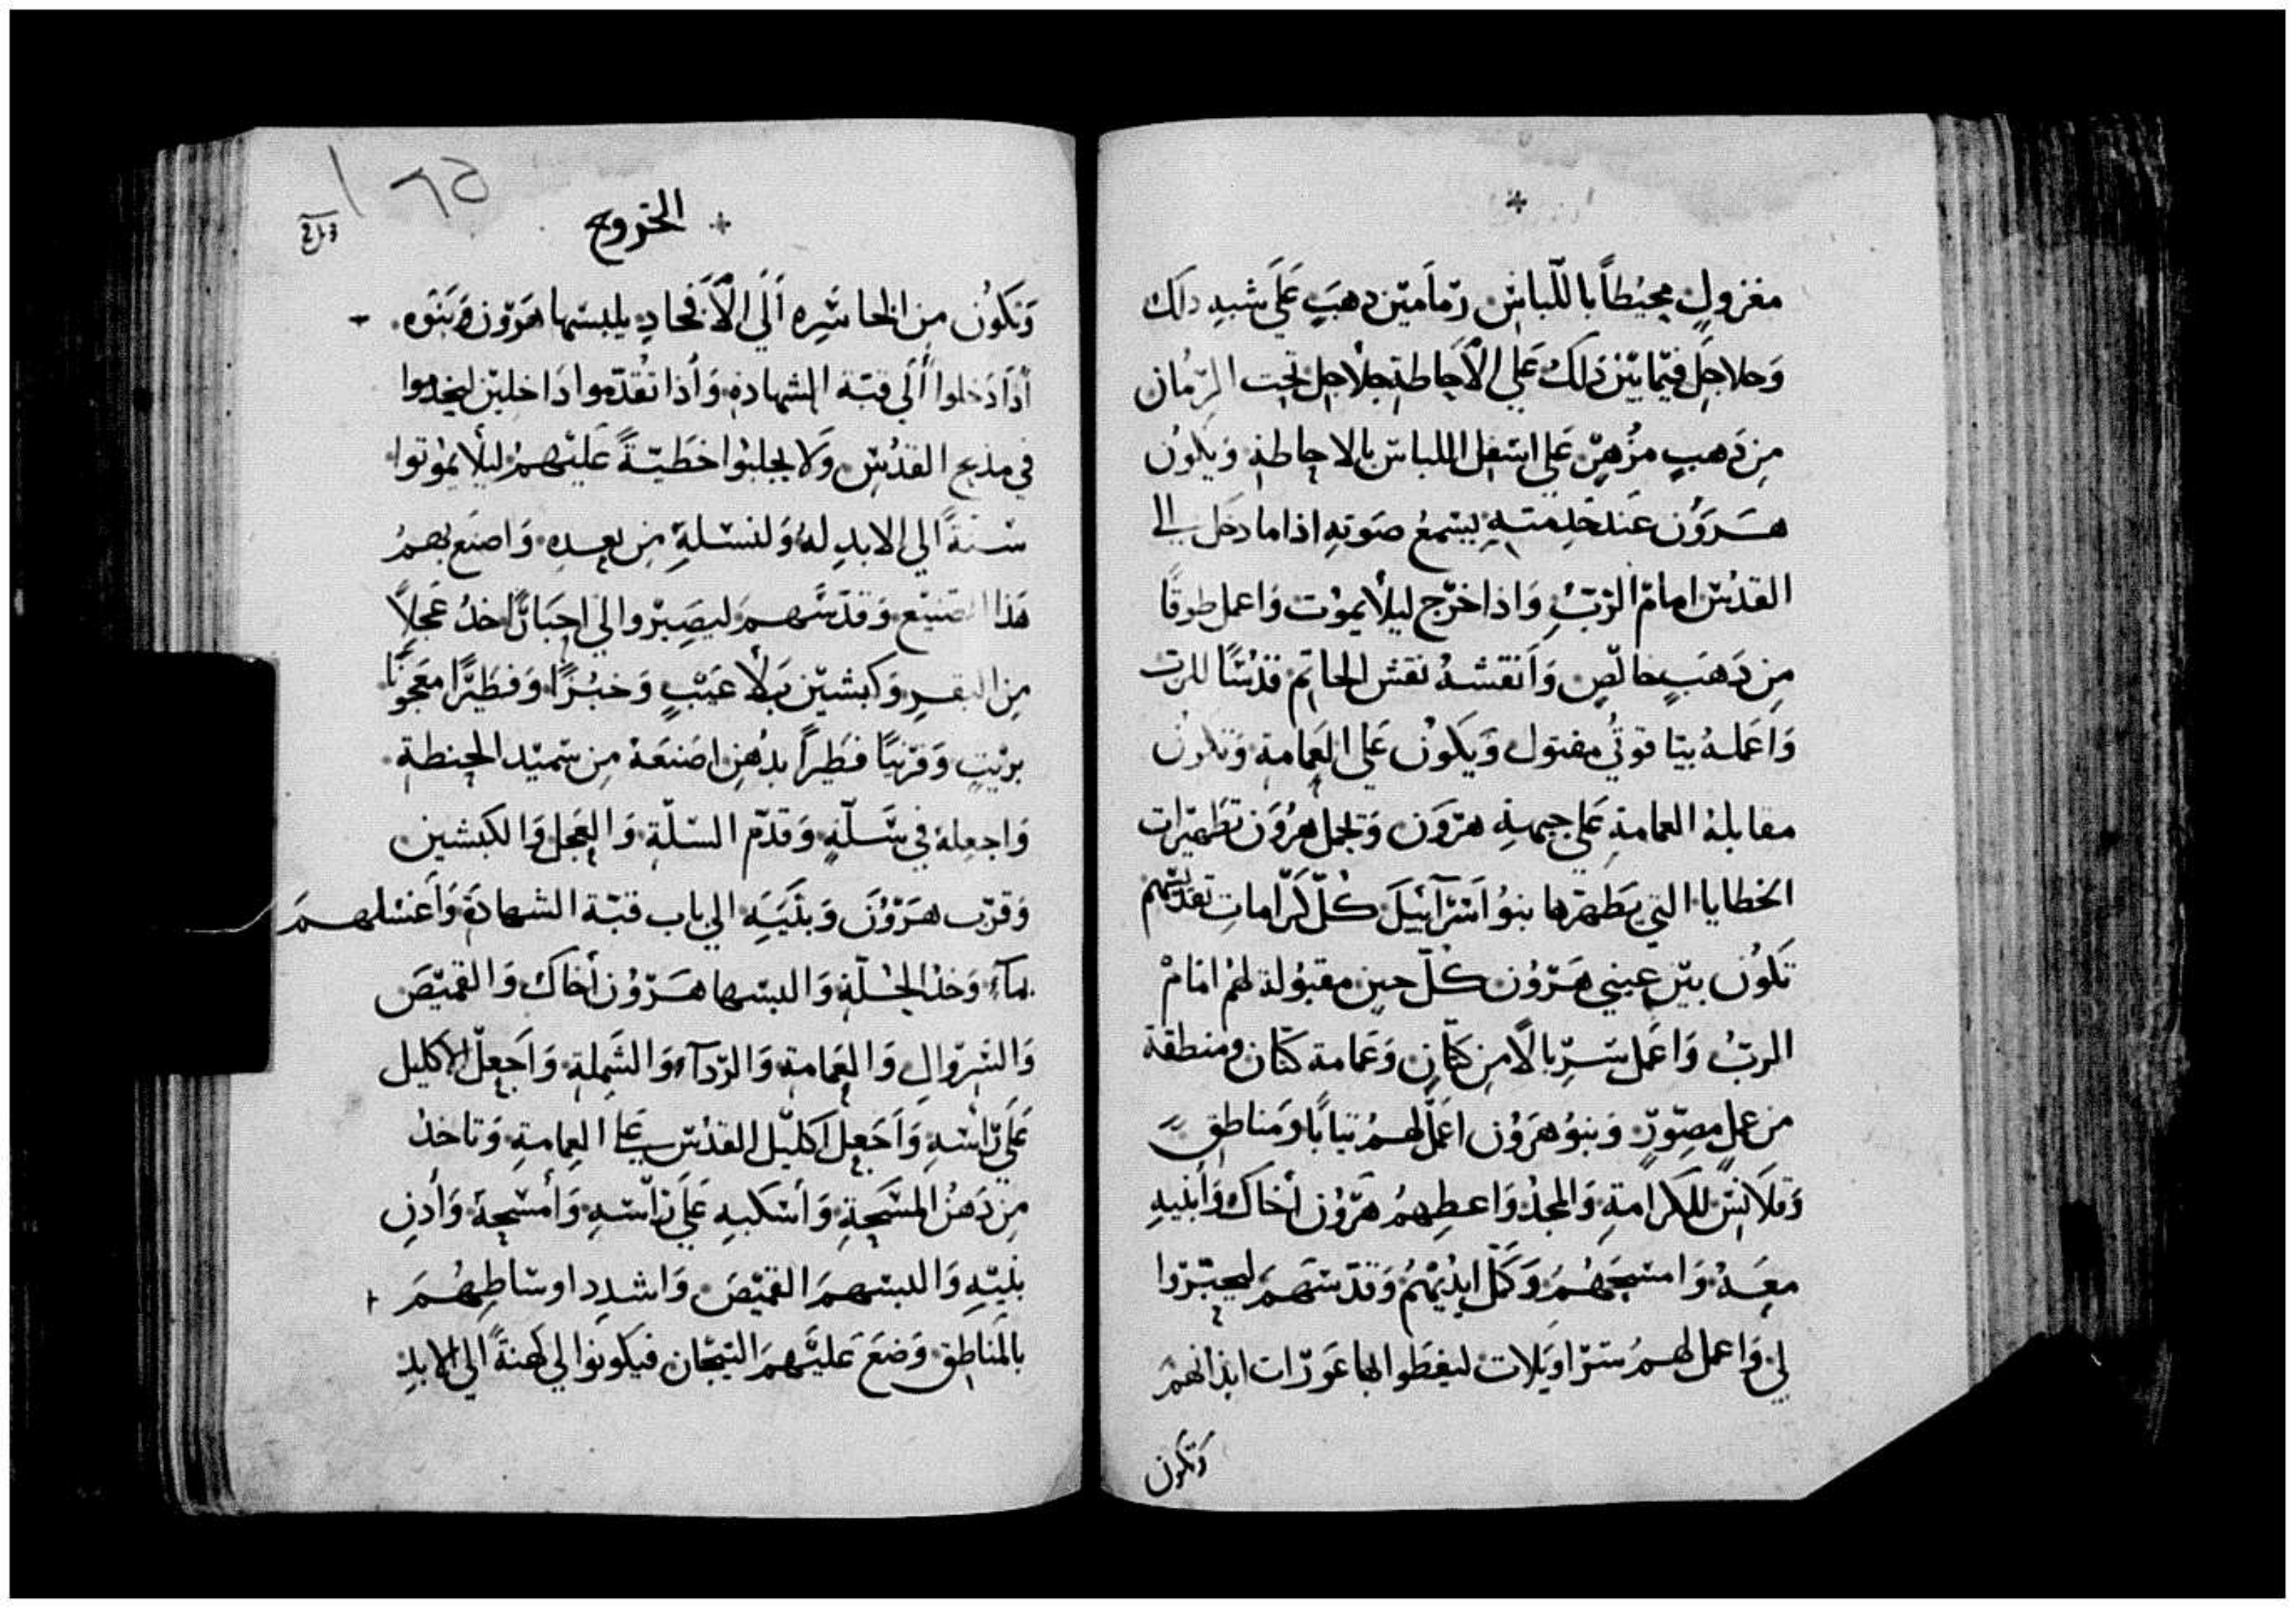 مغزولٍ محيُطاً باللّباسِ رمّامين دهبَ عَلَى شبهِ دلك
وَجلاجلَ فيمّا بيّن ذلكَ عَلي الأحاطة جلاجل تحت الرّمان
مِن دَهبٍ مزُهرٍّ عَلي اسفل اللباس بالاحاطةِ وَيكوُن
هَرَوُن عَند خدمتهِ يسمعُ صَوتهِ اذا ما دخل الي
القدُس امامَ الرّبُ وَاذا خرّج ليلاَ يموُت وَاعمل طوقًا
مِن دَهَبٍ خالصٍ وَانقشهُ نقش الخاتم قدسًا للرب
وَاعملهُ بياقوتيُ مفتول وَيكَونُ عَلي العِمامة وَتكون
مقابلة العمامةِ عَلي جبهةِ هرّون وَتحمل هرُوَن تطهيَرات
الخطايا التي يَطهرّها بنوُ اسَرآئيل كلّ كَرّامات تقدّسهم
تكوُن بيّن عيني هَرّوُن كلّ حين مقبوُلة لهمُ امَامْ
الربُ وَاعمَل سَرِبالًا مِن كتّانٍ وَعمَامة كتّان ومنطقة
من عملٍ مصوّرٍ وَبنوُ هَروُن اعمَل لهمُ تيابًا وَمناطق
وَقلاَنسَ للكرامةِ وَالمجدُ وَاعطهِمُ هَرّوُن أخاك وَأبنيهِ
معَهُ وَامسحَهُمَ وَكمّل ايديُهُم وَقدّسهَم ليحبّروا
لي وَاعمل لهمُ سَراويَلات ليغطوا بها عَورّات ابدانهمَ
وتكون
الخروج
وَتكَوُن من الخاسِره اَلَى الأفخادِ يلبسَها هرّون وَبنوَه
أذاَ دَخلوا أَلَى قبّة الشهادة وَأذا تقُدّموا دَاخلين ليخدموا
في مدبح القدُس وَلا يجلبُوا خطيّةً عَليَهمُ ليلاَ يموُتوا
سَنةً الي الابدِ لهُ وَلنسَلهِ مِن بعدِه وَاصنَع بهمُ
هَذا الصَنيَع وَقدّسَهم ليصَيِرُوا لي احبَارًا خدُ عَجلاً
مِن البقرِ وَكبشيَن بَلاَ عيَبٍ وَخبُزًا وَفطيَرًا معَجوُنًا
بزيتٍ وَقرّبيًا فطيَراً بدُهنٍ اصَنعَهَ مِن سَميَد الحِنطة
وَاجعِلهَ في سَلّةٍ وَقدّم السَلّة وَالعَجل وَالكبشين
وَقرّب هَرّوُنَ وَبنَيَه الي باب قبّة الشهادَة وَاغسَلهمَ
بمآءٍ وَخدُ الحُلّة وَالبسَها هَرّوُن أخاك وَالقميَصَ
وَالسَروّالِ وَالعِمَامة وَالرّدآء وَالشَملة وَاَجعلَ الاكليل
عَلَى رّاسَهِ وَاَجَعِل اكليّل القدُس عَلي العِمامةِ وَتاخدُ
مِن دَهنُ المسَحةِ وَأسَكبهِ عَلَى رّاسَهِ وَأمسَحهَ وَأدنِ
بنيَهِ وَالبسَهمَ القميَصَ وَاشددِ اوسَاطِهُمَ
بالمَناطِق وَضعَ عَليَهمَ التيجَان فيكَونوا لي كَهنةً الي الابدِ